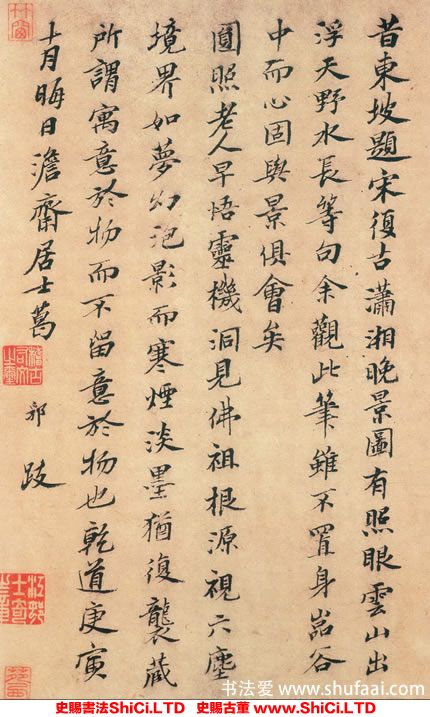 昔東坡題宋復古瀟湘晚景圖有照眼雲山出
浮天野水長等句余觀此筆雖不置身嵓谷
中而心固與景俱會矣
圓照老人早悟靈機洞見佛祖根源視六塵
境界如夢幻泡影而寒煙淡墨猶復襲藏
所謂寓意於物而不留意於物也乾道庚寅
十月晦日澹齋居士葛
郯 跋
书法爱 www.shufaai.com
史賜書法ShiCi.LTD 史賜古董 www.ShiCi.LTD